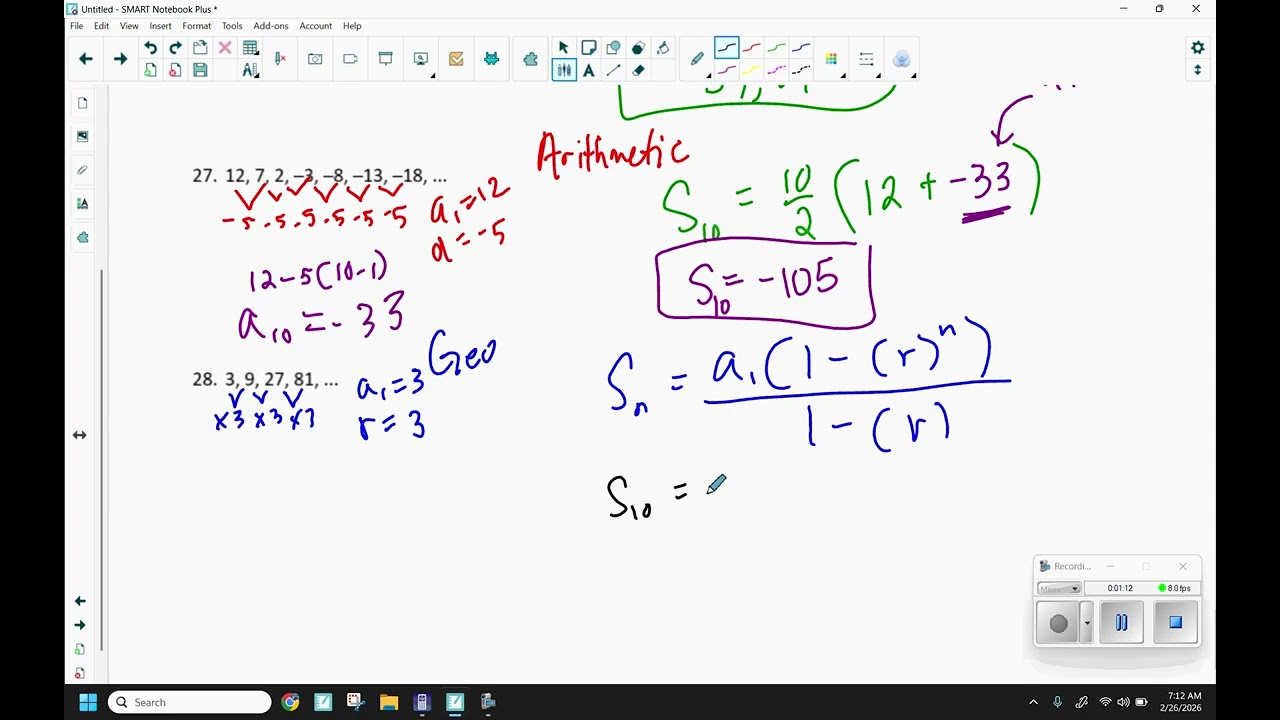 Untitled - SMART Notebook Plus *
File Edit View Insert Format Tools Add-ons Account Help
Arithmetic
27. 12, 7, 2, −3, −8, −13, −18, ...
-5 -5 -5 -5 -5 -5
a₁ = 12
d = -5
S₁₀ = 10/2 (12 + -33)
12-5(10-1)
a₁₀ = -33
S₁₀ = -105
Geo
28. 3, 9, 27, 81, ...
x3 x3 x3
a₁ = 3
r = 3
Sₙ = a₁(1-(r)ⁿ) / 1-(r)
S₁₀ =
Recordi...
Menu
0:01:12
8.0 fps
Search
7:12 AM
2/26/2026